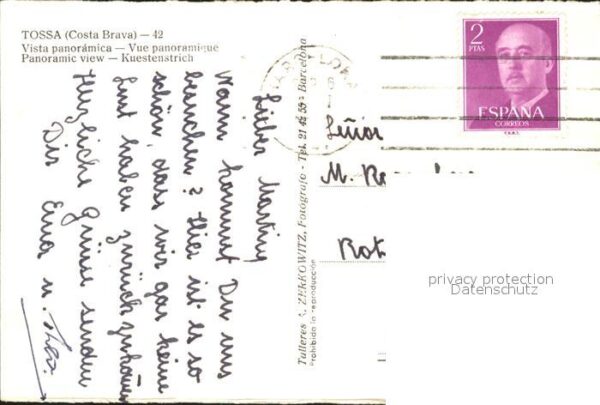 TOSSA (Costa Brava) — 42
Vista panorámica — Vue panoramique
Panoramic view — Kuestenstrich
Lieber Martin,
Wann kommst Du uns
besuchen? Hier ist es so
schön, dass wir gar keine
Lust haben zurückzukehren
Herzliche Grüsse senden
Dir Erna u.
Talleres A. ZERKOWITZ, Fotógrafo - Tel. 21 42 55 - Barcelona
Prohibida la reproducción
BARCELONA
2
PTAS
ESPAÑA
CORREOS
Señor
M.
Rot
privacy protection
Datenschutz